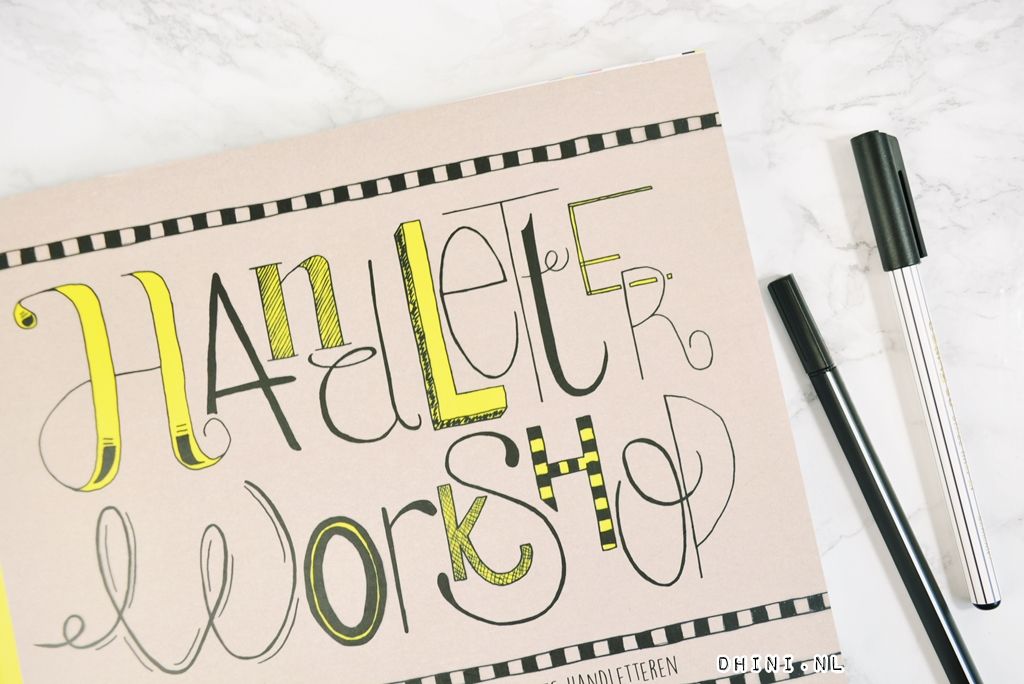 HAndLEttER
WorkSHOP
HANDLETTEREN
DHINI.NL